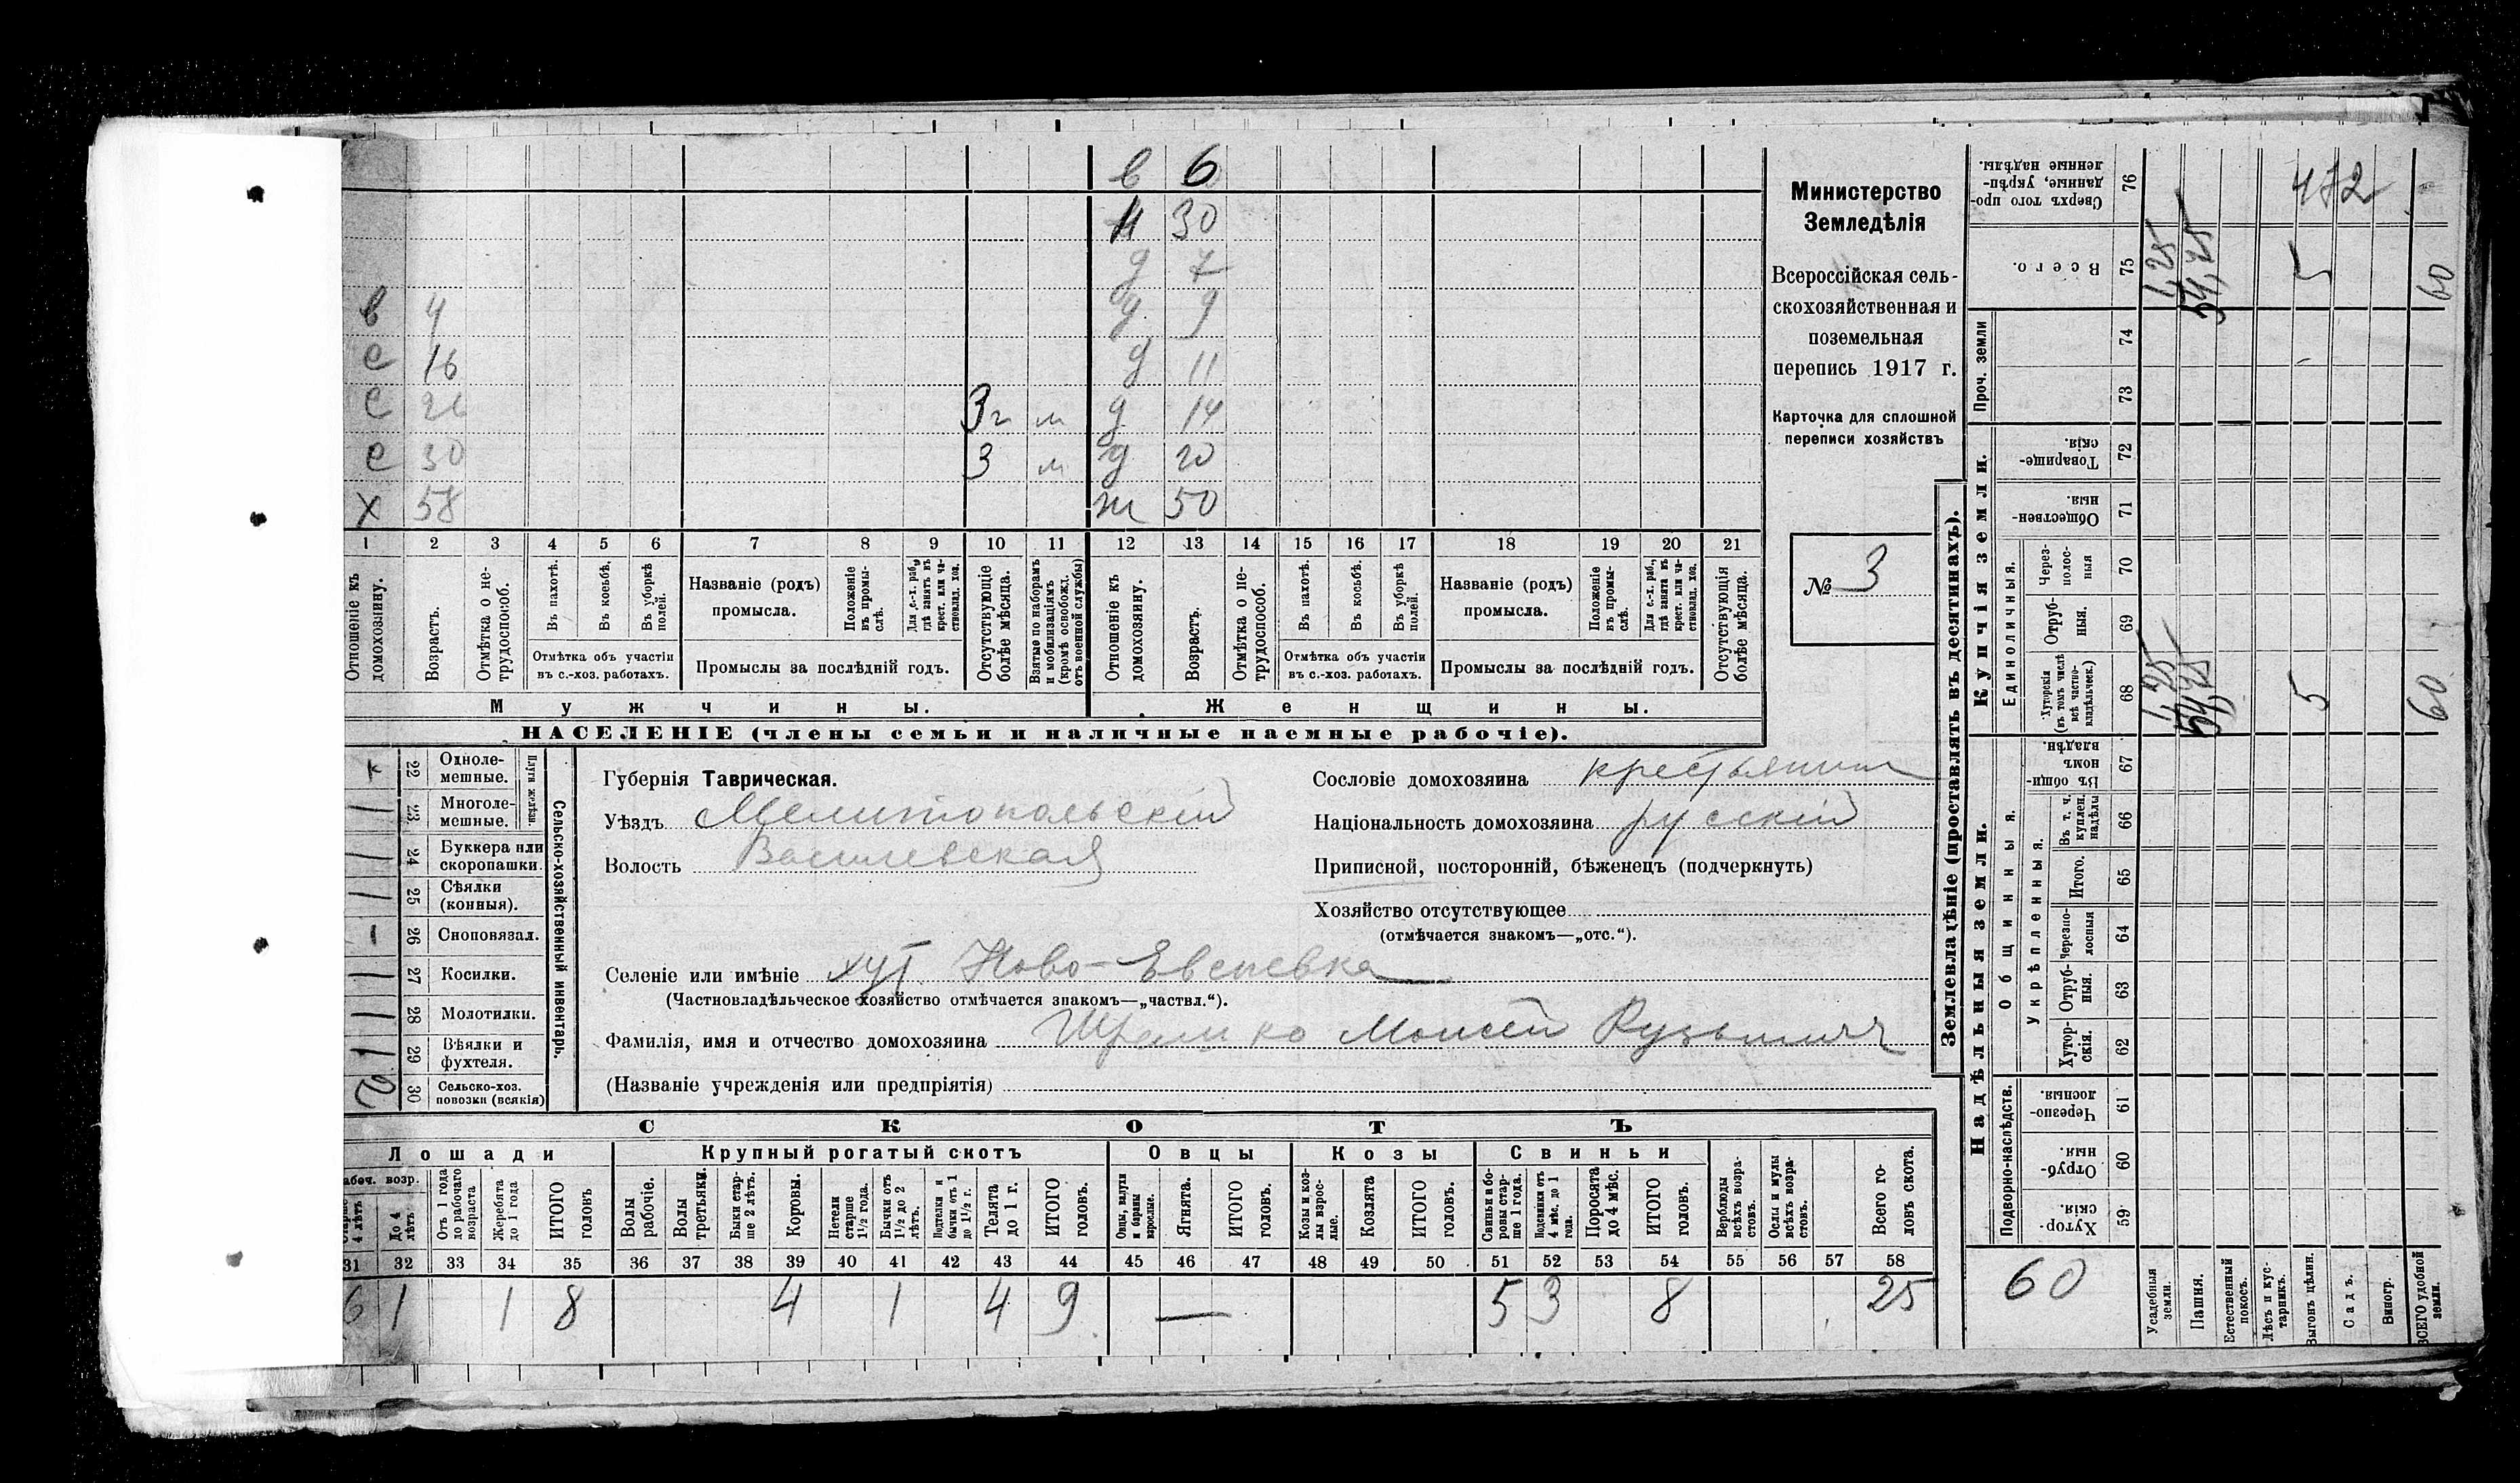 в 6
н 30
д 7
в 4 д 9
с 16 д 11
с 21 3г м д 14
с 30 3 м д 20
х 58 ж 50
1 2 3 4 5 6 7 8 9 10 11 12 13 14 15 16 17 18 19 20 21
Отношеніе къ домохозяину.
Возрастъ.
Отмѣтка о нетрудоспособ.
Въ пахотѣ.
Въ косьбѣ.
Въ уборкѣ полей.
Отмѣтка объ участіи въ с.-хоз. работахъ.
Названіе (родъ) промысла.
Положеніе въ промыслѣ.
Для с.-х. раб., гдѣ занятъ въ крест. или частновлад. хоз.
Промыслы за послѣдній годъ.
Отсутствующіе болѣе мѣсяца.
Взятые по наборамъ и мобилизаціямъ (кромѣ освобожд. отъ военной службы)
Отношеніе къ домохозяину.
Возрастъ.
Отмѣтка о нетрудоспособ.
Въ пахотѣ.
Въ косьбѣ.
Въ уборкѣ полей.
Отмѣтка объ участіи въ с.-хоз. работахъ.
Названіе (родъ) промысла.
Положеніе въ промыслѣ.
Для с.-х. раб., гдѣ занята въ крест. или частновлад. хоз.
Промыслы за послѣдній годъ.
Отсутствующія болѣе мѣсяца.
Мужчины. Женщины.
НАСЕЛЕНІЕ (члены семьи и наличные наемные рабочіе).
Министерство
Земледѣлія
Всероссійская сель-
скохозяйственная и
поземельная
перепись 1917 г.
Карточка для сплошной
переписи хозяйствъ
№ 3
22 Одноле-мешные.
23 Многоле-мешные.
Плуги желѣзн.
1 24 Буккера или скоропашки.
1 25 Сѣялки (конныя).
26 Сноповязал.
1 27 Косилки.
1 28 Молотилки.
1 29 Вѣялки и фухтеля.
2 30 Сельско-хоз. повозки (всякія)
Сельско-хозяйственный инвентарь.
Губернія Таврическая.
Уѣздъ Мелитопольскій
Волость Василевская
Сословіе домохозяина крестьянин
Національность домохозяина русскій
Приписной, посторонній, бѣженецъ (подчеркнуть)
Хозяйство отсутствующее
(отмѣчается знакомъ—„отс.“).
Селеніе или имѣніе хут Ново-
(Частновладѣльческое хозяйство отмѣчается знакомъ—„частвл.“).
Фамилія, имя и отчество домохозяина Шрамко Моисей Кузьмич
(Названіе учрежденія или предпріятія)
СКОТЪ
Лошади Крупный рогатый скотъ Овцы Козы Свиньи
Рабоч. возр.
Старше 4 лѣтъ
До 4 лѣтъ
Отъ 1 года до рабочаго возраста
Жеребята до 1 года
ИТОГО головъ
Волы рабочіе.
Волы третьяки.
Быки старше 2 лѣтъ.
Коровы.
Нетели старше 1½ года.
Бычки отъ 1½ до 2 лѣтъ.
Подтелки и бычки отъ 1 до 1½ г.
Телята до 1 г.
ИТОГО головъ.
Овцы, валухи и бараны взрослые.
Ягнята.
ИТОГО головъ.
Козы и козлы взрослые.
Козлята
ИТОГО головъ.
Свиньи и боровы старше 1 года.
Подсвинки отъ 4 мѣс. до 1 года.
Поросята до 4 мѣс.
ИТОГО головъ.
Верблюды всѣхъ возрастовъ.
Ослы и мулы всѣхъ возрастовъ.
Всего головъ скота.
31 32 33 34 35 36 37 38 39 40 41 42 43 44 45 46 47 48 49 50 51 52 53 54 55 56 57 58
6 1 1 8 4 1 4 9 — 5 3 8 25
Землевладѣніе (проставлять въ десятинахъ).
Купчія земли.
Надѣльныя земли.
Проч. земли
Единоличныя.
Общинныя.
Укрѣпленныя.
Подворно-наслѣдств.
Сверхъ того проданные, укрѣпленные надѣлы. 76 472
Всего. 75 1,25 54,25 5 60
74
73
Товарищескія. 72
Общественныя 71
Черезполосныя 70
Отрубныя. 69
Хуторскія (въ томъ числѣ всѣ частновладѣльческ.) 68 1,25 54,25 5 60
Въ общинномъ владѣн. 67
Въ т. ч. куплен. надѣлы 66
Итого. 65
Черезполосныя 64
Отрубныя. 63
Хуторскія. 62
Черезполосныя. 61
Отрубныя 60
Хуторскія. 59
60
Усадебныя земли.
Пашня.
Естественный покосъ.
Лѣсъ и кустарникъ.
Выгонъ цѣлин.
Садъ.
Виногр.
ВСЕГО удобной земли.